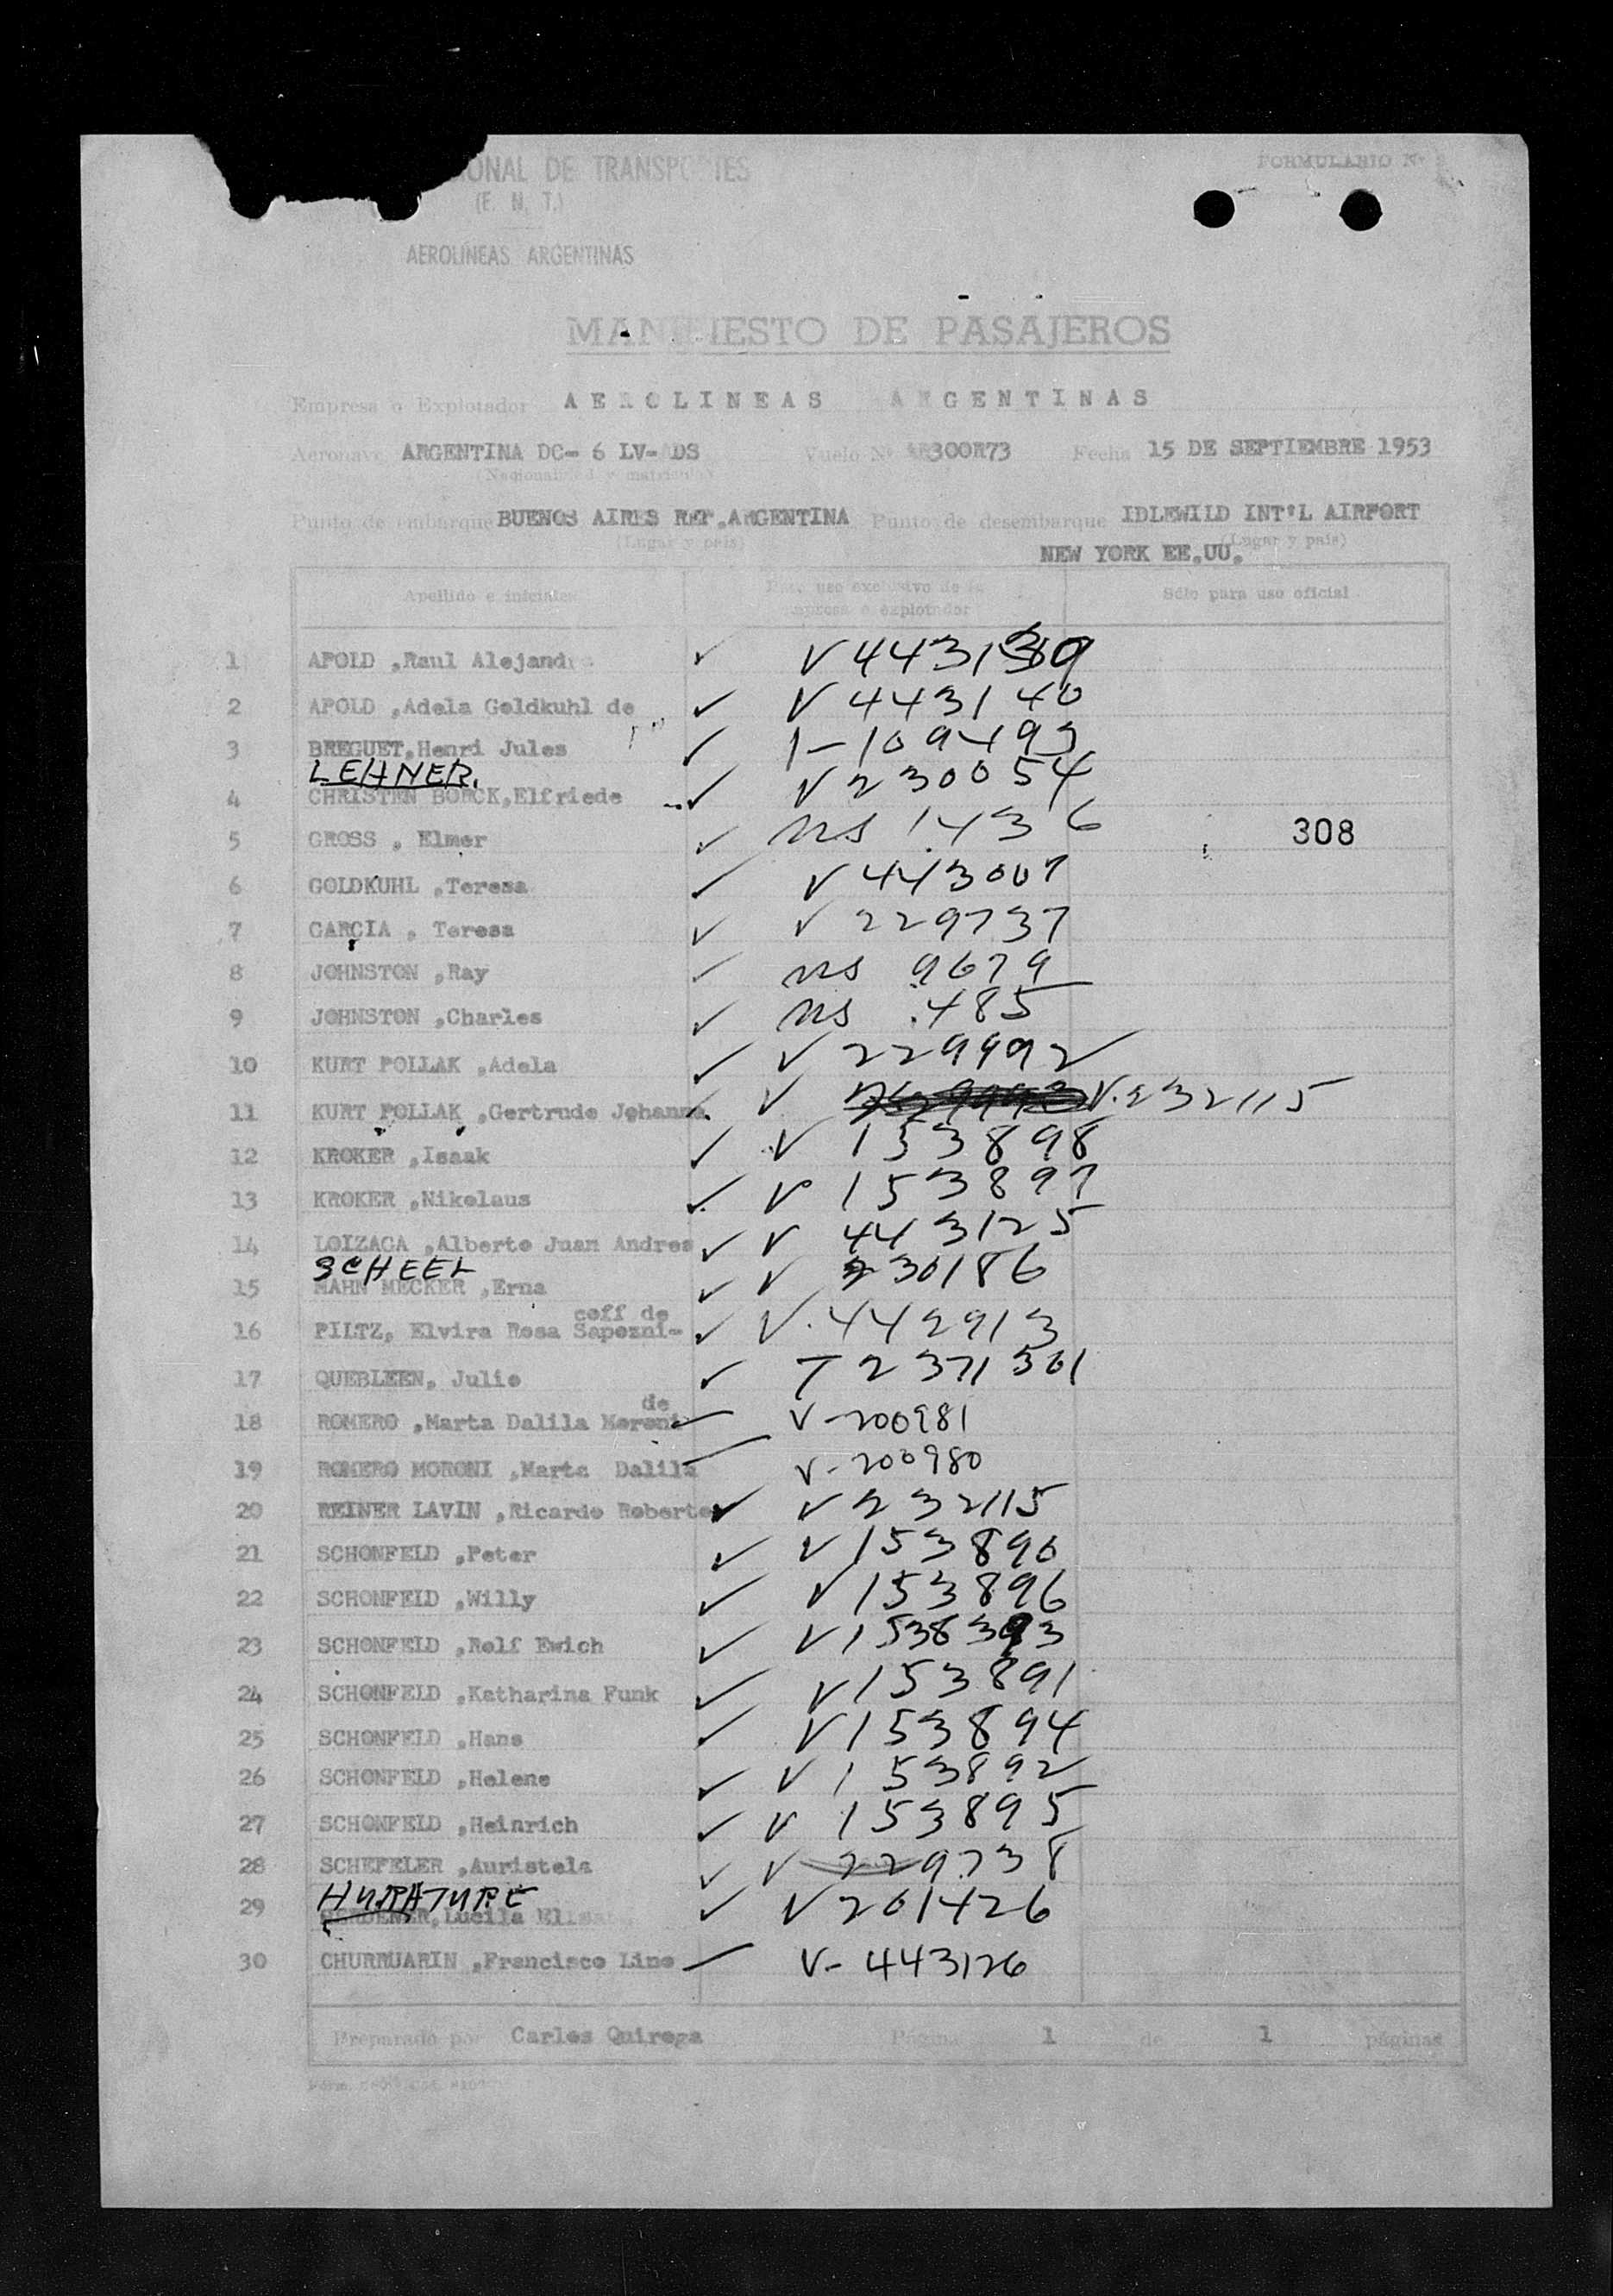 ONAL DE TRANSPORTES
FORMULARIO Nº
(E. N. T.)
AEROLINEAS ARGENTINAS
MANIFIESTO DE PASAJEROS
Empresa o Explotador AEROLINEAS ARGENTINAS
Aeronave ARGENTINA DC- 6 LV-ADS Vuelo Nº 300R73 Fecha 15 DE SEPTIEMBRE 1953
(Nacionalidad y matrícula)
Punto de embarque BUENOS AIRES REP.ARGENTINA Punto de desembarque IDLEWILD INT'L AIRPORT
(Lugar y país) (Lugar y país)
NEW YORK EE.UU.
Apellido e iniciales Para uso exclusivo de la empresa o explotador Sólo para uso oficial
1 APOLD ,Raul Alejandro ✓ V 443139
2 APOLD ,Adela Goldkuhl de ✓ V 443140
3 BREGUET,Henri Jules ✓ 1-109493
LEHNER.
4 CHRISTEN BOECK,Elfriede ✓ V 230054
5 GROSS , Elmer ✓ ns 1436 308
6 GOLDKUHL ,Teresa ✓ V 443007
7 GARCIA , Teresa ✓ V 229737
8 JOHNSTON ,Ray ✓ ns 9679
9 JOHNSTON ,Charles ✓ ns 485
10 KURT POLLAK ,Adela ✓ V 229992
11 KURT POLLAK ,Gertrude Johanna. V V.232115
12 KROKER ,Isaak ✓ V 153898
13 KROKER ,Nikolaus ✓ V 153897
14 LOIZAGA ,Alberto Juan Andres ✓ V 443125
SCHEEL
15 MAHN MECKER ,Erna ✓ V 230186
coff de
16 PILTZ, Elvira Rosa Sapozni- ✓ V.442913
17 QUEBLEEN, Julio ✓ T 2371301
de
18 ROMERO ,Marta Dalila Moroni ✓ V-200981
19 ROMERO MORONI ,Marta Dalila ✓ V-200980
20 REINER LAVIN ,Ricardo Roberto ✓ V 232115
21 SCHONFELD ,Peter ✓ V 153890
22 SCHONFELD ,Willy ✓ V 153896
23 SCHONFELD ,Rolf Ewich ✓ V 1538393
24 SCHONFELD ,Katharina Funk ✓ V 153891
25 SCHONFELD ,Hans ✓ V 153894
26 SCHONFELD ,Helene ✓ V 153892
27 SCHONFELD ,Heinrich ✓ V 153895
28 SCHEFELER ,Auristela ✓ V 229738
HURATURE
29 Lucila ✓ V 201426
30 CHURRUARIN ,Francisco Lino ✓ V-443126
Preparado por Carlos Quiroga Página 1 de 1 páginas